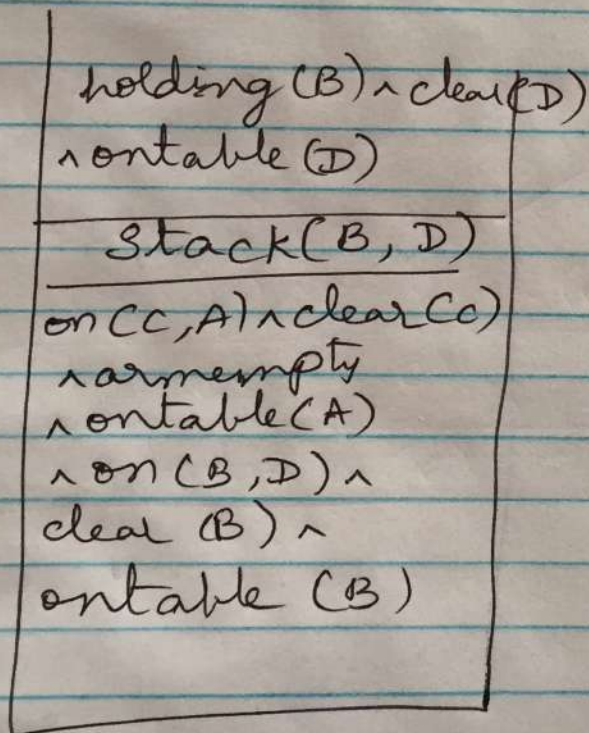 holding (B) ∧ clear(D)
∧ ontable (D)
Stack(B, D)
on (C, A) ∧ clear (C)
∧ armempty
∧ ontable (A)
∧ on (B, D) ∧
clear (B) ∧
ontable (B)